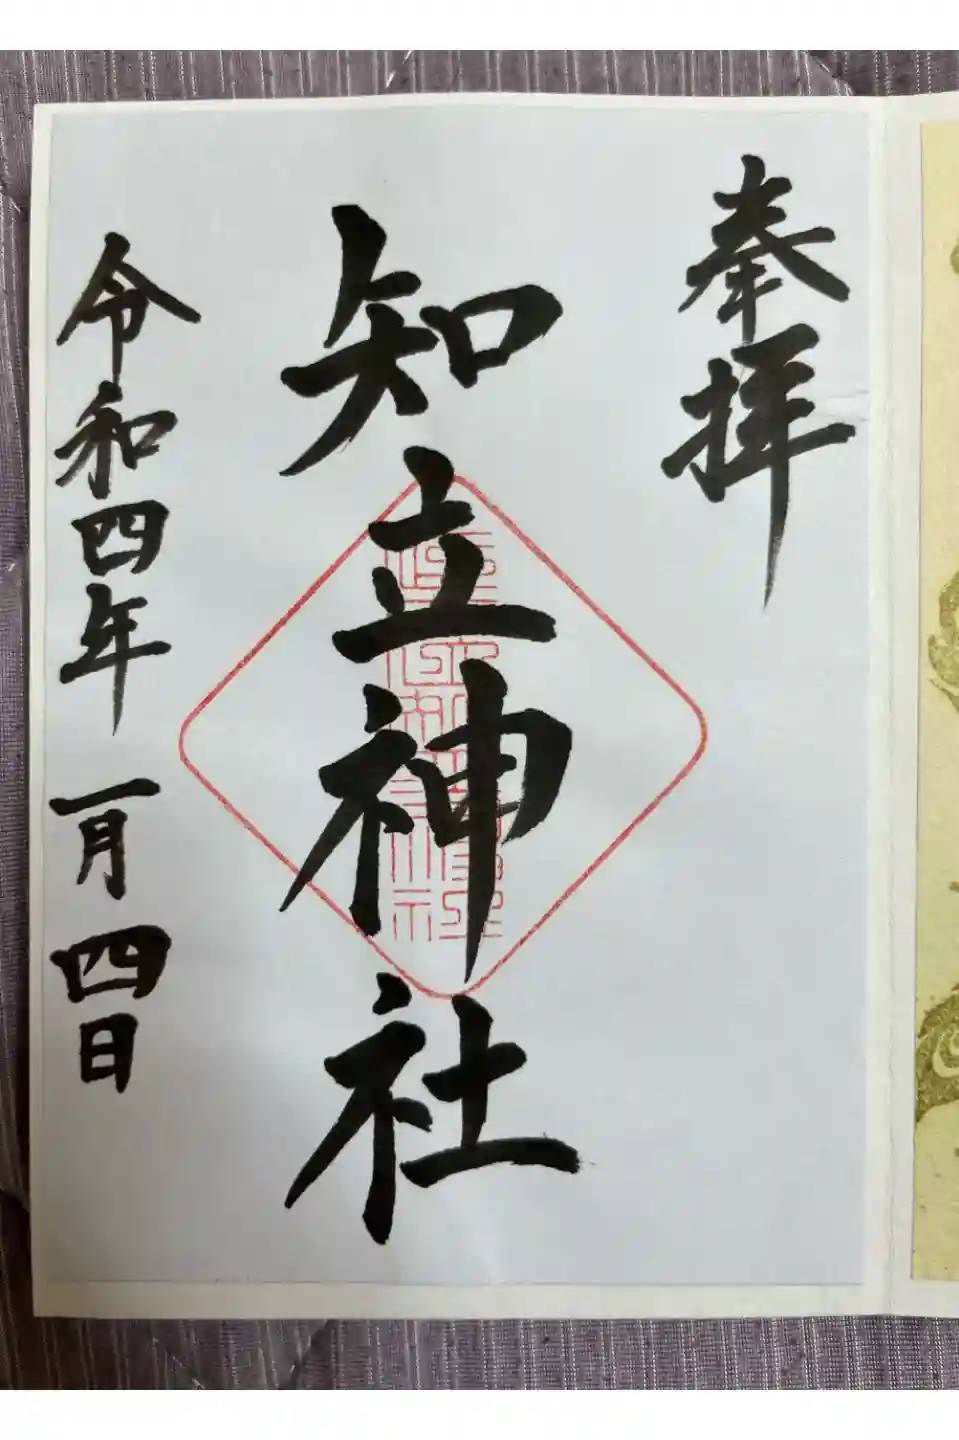 奉拝
知立神社
令和四年 一月四日